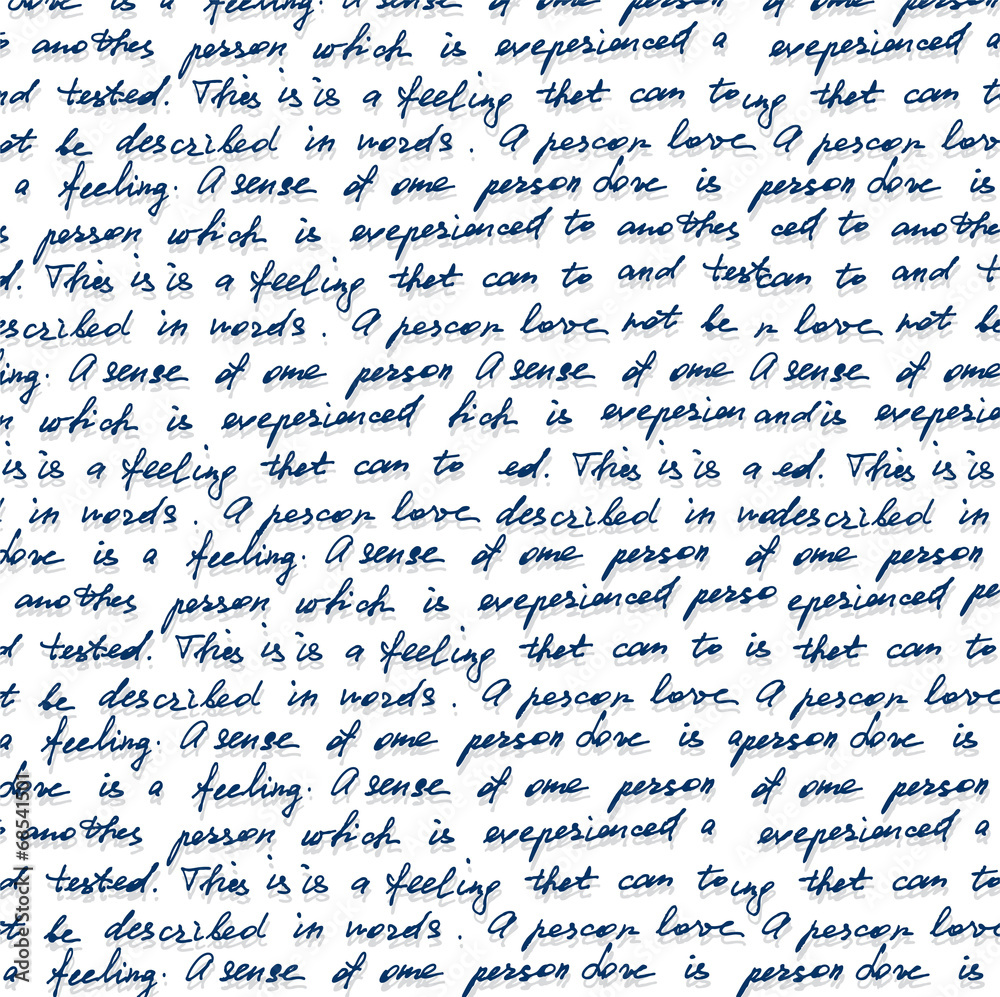 is a feeling. A sense of ome person of ome person
another person which is exepezienced a exepezienced a
nd tested. This is is a feeling thet can to ing thet can t
ot be described in words. A person love A person lov
a feeling. A sense of ome person Love is person Love is
s person which is exepezienced to another ced to anothe
d. This is is a feeling thet can to and test can to and t
escribed in words. A person love not be n love not be
ing. A sense of ome person A sense of ome A sense of ome
n which is exepezienced hich is exepezien and is exepezie
is is a feeling thet can to ed. This is is a ed. This is is
in words. A person love described in wo described in
Love is a feeling. A sense of ome person of ome person
another person which is exepezienced perso epezienced pe
d tested. This is is a feeling thet can to is thet can to
t be described in words. A person love A person love
a feeling. A sense of ome person Love is a person Love is
Love is a feeling. A sense of ome person of ome person
another person which is exepezienced a exepezienced a
d tested. This is is a feeling thet can to ing thet can to
t be described in words. A person love A person love
a feeling. A sense of ome person Love is person Love is
Adobe Stock | #68541501